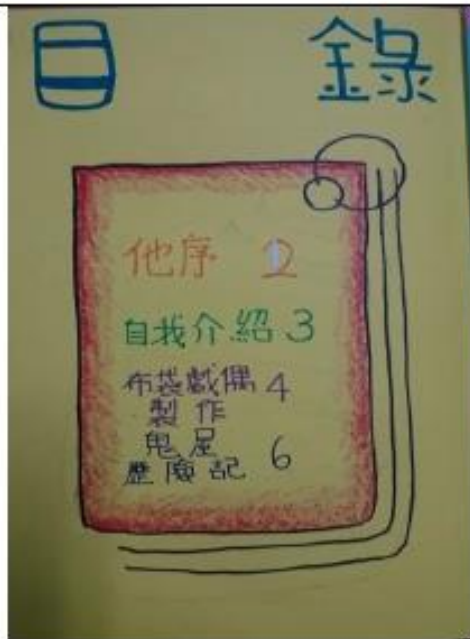 目 錄
他序 2
自我介紹 3
布袋戲偶 4
製作
鬼屋
歷險記 6